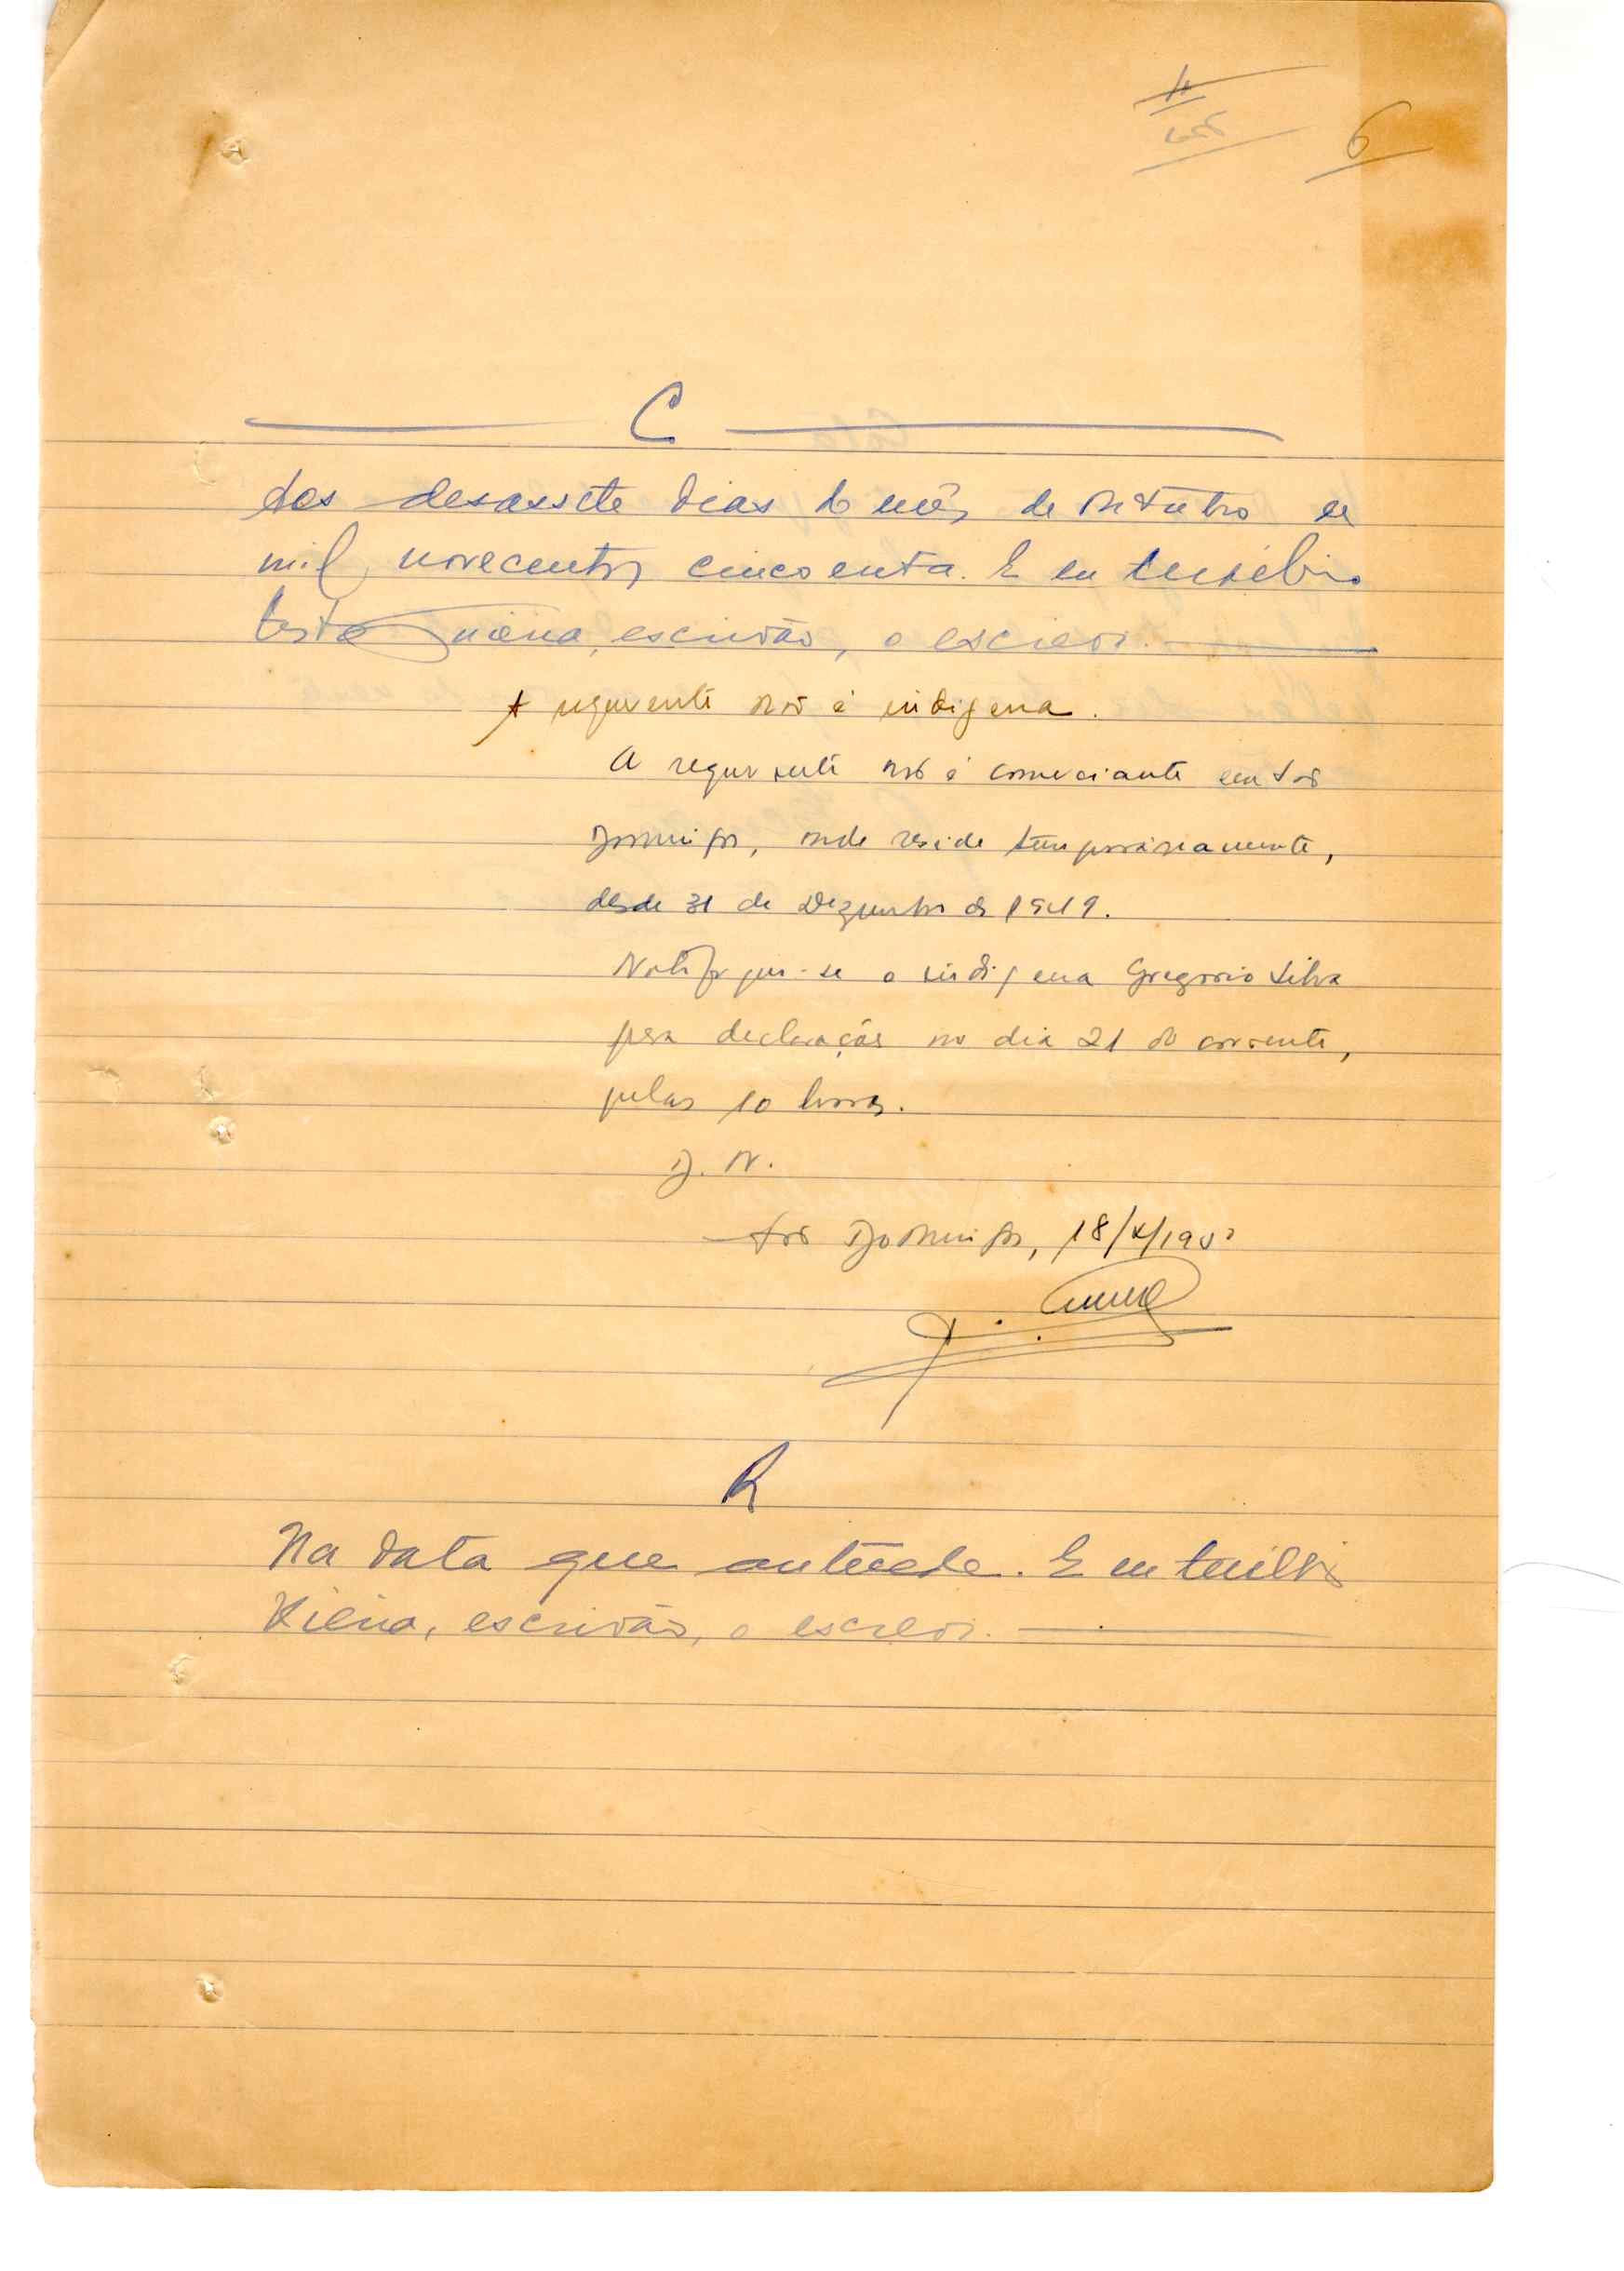 6
C
Aos desassete dias do mês de Outubro de
mil novecentos cincoenta. E eu Eusébio
Costa Viena, escrivão, o escrevi.
A requerente não é indigena.
A requerente não é comerciante em São
Domingos, onde reside temporáriamente,
desde 31 de Dezembro de 1949.
Notifique-se o indigena Gregorio Silva
para declarações no dia 21 do corrente,
pelas 10 horas.
D. N.
São Domingos, 18/X/1950
R
Na data que antecede. E eu Eusébio
Viena, escrivão, o escrevi.